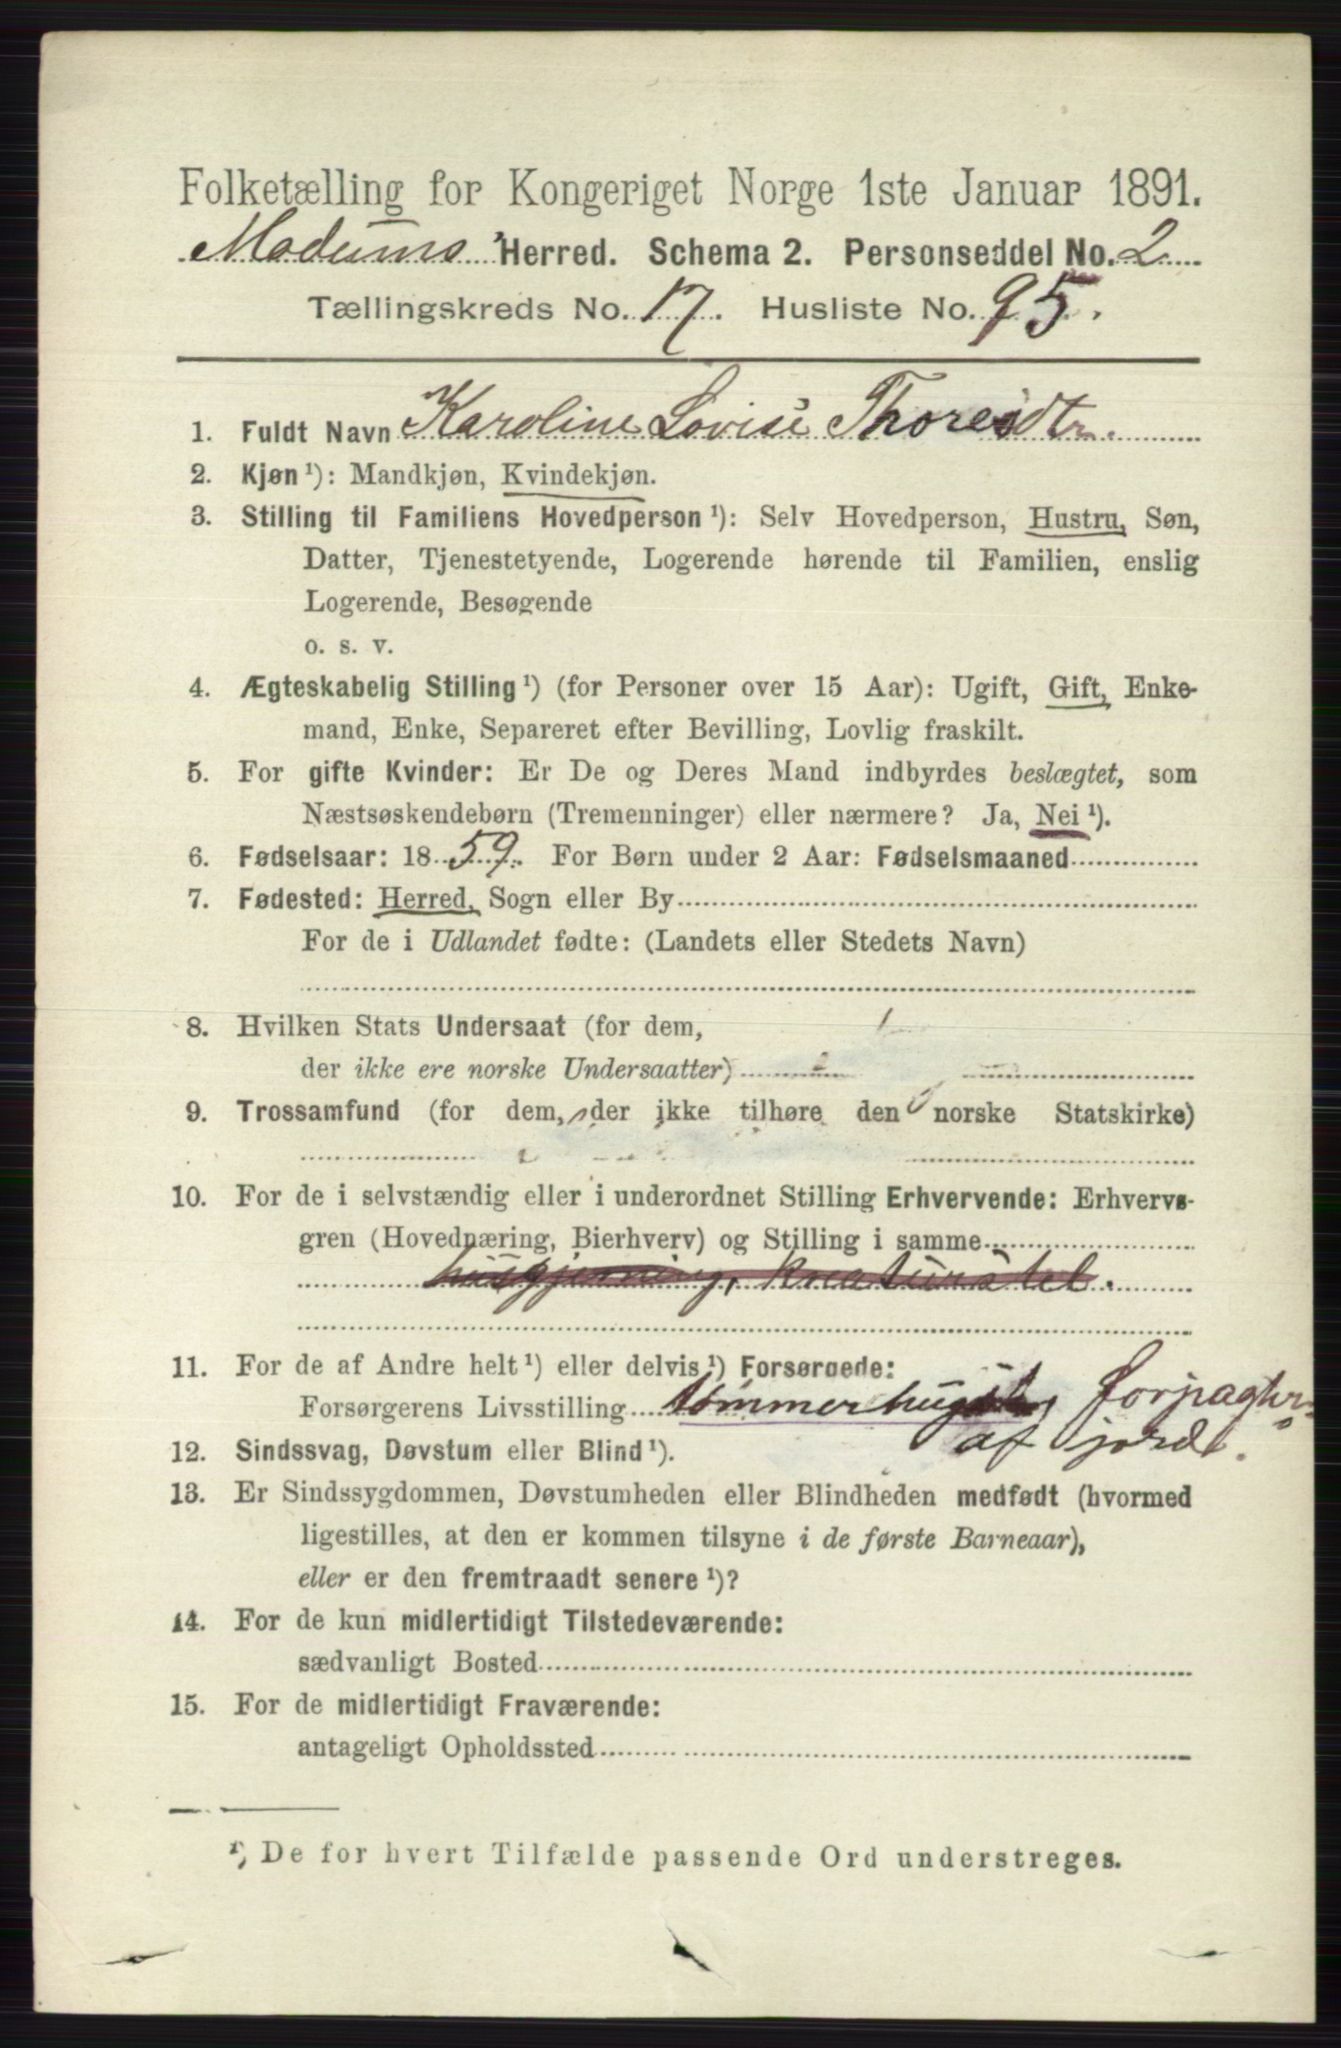 Folketælling for Kongeriget Norge 1ste Januar 1891.
Modums Herred. Schema 2. Personseddel No. 2
Tællingskreds No. 17. Husliste No. 95.
1. Fuldt Navn Karoline Lovise Thoresdtr.
2. Kjøn ¹): Mandkjøn, Kvindekjøn.
3. Stilling til Familiens Hovedperson ¹): Selv Hovedperson, Hustru, Søn,
Datter, Tjenestetyende, Logerende hørende til Familien, enslig
Logerende, Besøgende
o. s. v.
4. Ægteskabelig Stilling ¹) (for Personer over 15 Aar): Ugift, Gift, Enke-
mand, Enke, Separeret efter Bevilling, Lovlig fraskilt.
5. For gifte Kvinder: Er De og Deres Mand indbyrdes beslægtet, som
Næstsøskendebørn (Tremenninger) eller nærmere? Ja, Nei ¹).
6. Fødselsaar: 1859. For Børn under 2 Aar: Fødselsmaaned
7. Fødested: Herred, Sogn eller By
For de i Udlandet fødte: (Landets eller Stedets Navn)
8. Hvilken Stats Undersaat (for dem,
der ikke ere norske Undersaatter)
9. Trossamfund (for dem, der ikke tilhøre den norske Statskirke)
10. For de i selvstændig eller i underordnet Stilling Erhvervende: Erhvervs-
gren (Hovednæring, Bierhverv) og Stilling i samme
husgjerning, kreaturstel.
11. For de af Andre helt ¹) eller delvis ¹) Forsørgede:
Forsørgerens Livsstilling tømmerhugst, Forpagter
af jord.
12. Sindssvag, Døvstum eller Blind ¹).
13. Er Sindssygdommen, Døvstumheden eller Blindheden medfødt (hvormed
ligestilles, at den er kommen tilsyne i de første Barneaar),
eller er den fremtraadt senere ¹)?
14. For de kun midlertidigt Tilstedeværende:
sædvanligt Bosted
15. For de midlertidigt Fraværende:
antageligt Opholdssted
¹) De for hvert Tilfælde passende Ord understreges.